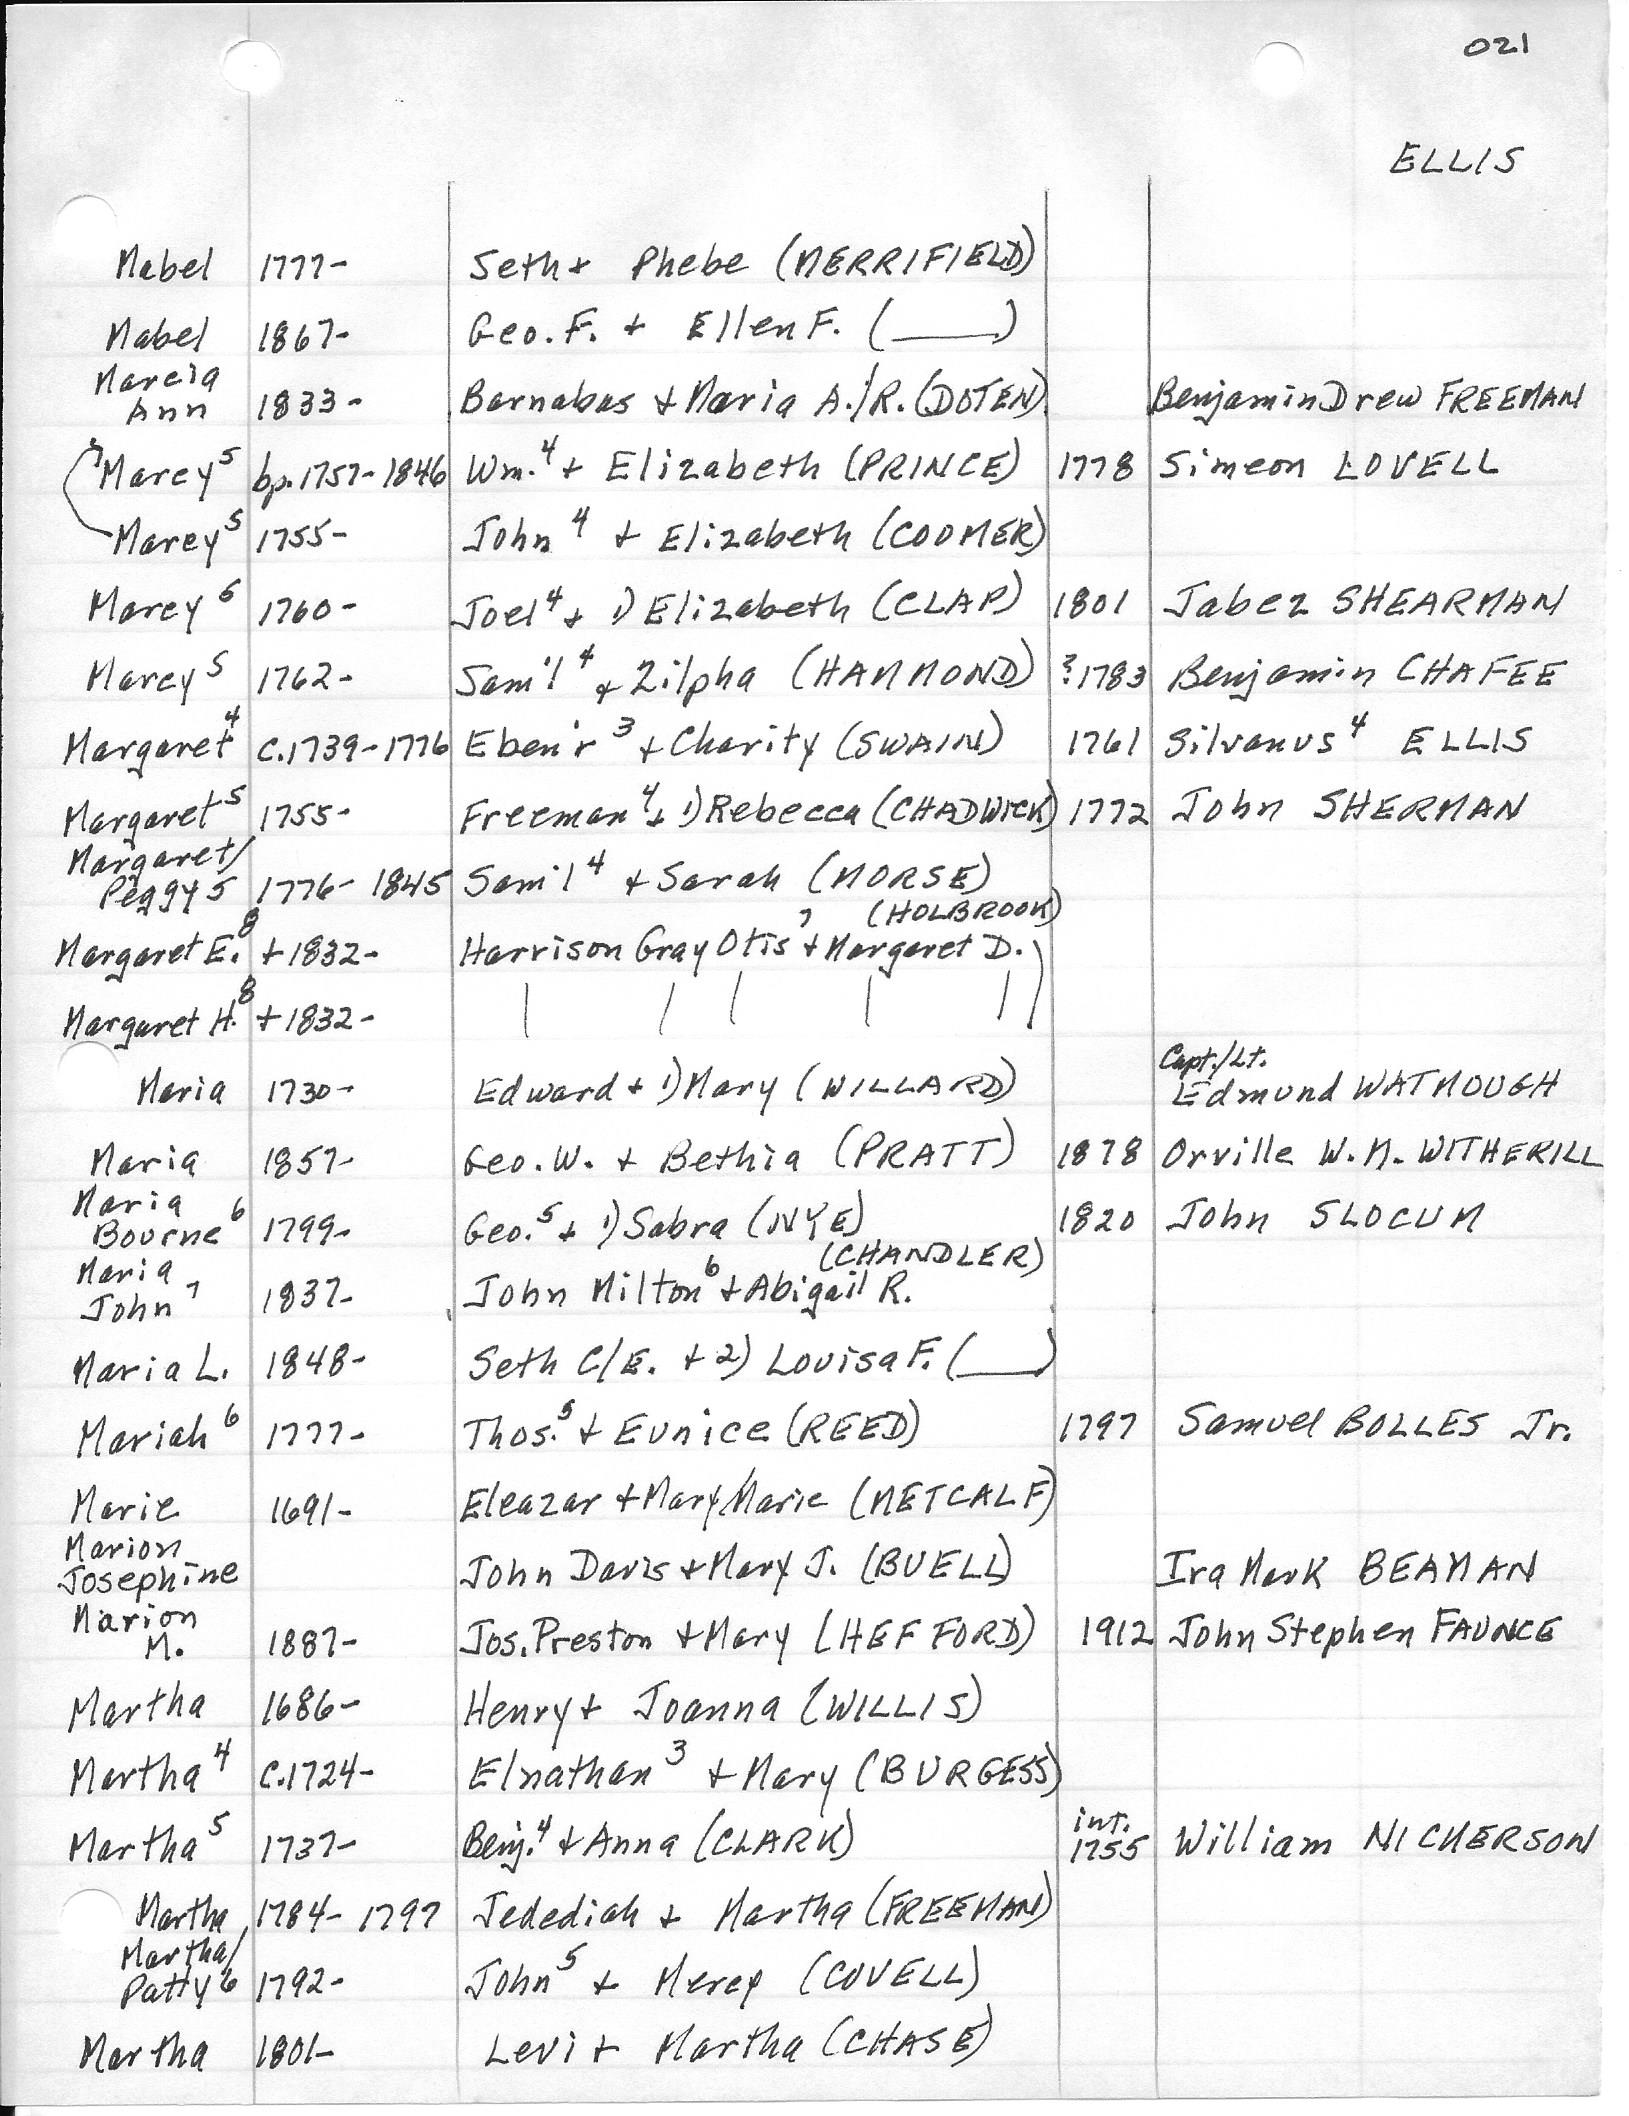 021
ELLIS
Mabel 1777- Seth + Phebe (MERRIFIELD)
Mabel 1867- Geo. F. + Ellen F. (____)
Marcia
Ann 1833- Barnabas + Maria A./R. (DOTEN) Benjamin Drew FREEMAN
Marcy⁵ bp. 1757-1846 Wm.⁴ + Elizabeth (PRINCE) 1778 Simeon LOVELL
Marcy⁵ 1755- John⁴ + Elizabeth (COOMER)
Marcy⁵ 1760- Joel⁴ + 1) Elizabeth (CLAP) 1801 Jabez SHEARMAN
Marcy⁵ 1762- Sam'l⁴ + Zilpha (HAMMOND) ?1783 Benjamin CHAFEE
Margaret⁴ c.1739-1776 Eben'r³ + Charity (SWAIN) 1761 Silvanus⁴ ELLIS
Margaret⁵ 1755- Freeman⁴ + 1) Rebecca (CHADWICK) 1772 John SHERMAN
Margaret/
Peggy⁵ 1776-1845 Sam'l⁴ + Sarah (MORSE)
(HOLBROOK)
Margaret E.⁸ +1832- Harrison Gray Otis⁷ + Margaret D.
Margaret H.⁸ +1832- | | | | |
Capt./Lt.
Maria 1730- Edward + 1) Mary (WILLARD) Edmund WATMOUGH
Maria 1857- Geo. W. + Bethia (PRATT) 1878 Orville W. M. WITHERILL
Maria
Bourne⁶ 1799- Geo.⁵ + 1) Sabra (NYE) 1820 John SLOCUM
(CHANDLER)
Maria
John⁷ 1837- John Milton⁶ + Abigail R.
Maria L. 1848- Seth C/E. + 2) Louisa F. (____)
Mariah⁶ 1777- Thos.⁵ + Eunice (REED) 1797 Samuel BOLLES Jr.
Marie 1691- Eleazar + Mary/Marie (METCALF)
Marion
Josephine John Davis + Mary J. (BUELL) Ira Mark BEAMAN
Marion
M. 1887- Jos. Preston + Mary (HEFFORD) 1912 John Stephen FAUNCE
Martha 1686- Henry + Joanna (WILLIS)
Martha⁴ c.1724- Elnathan³ + Mary (BURGESS)
int.
Martha⁵ 1737- Benj.⁴ + Anna (CLARK) 1755 William NICKERSON
Martha 1784-1797 Jedediah + Martha (FREEMAN)
Martha/
Patty⁶ 1792- John⁵ + Mercy (COVELL)
Martha 1801- Levi + Martha (CHASE)